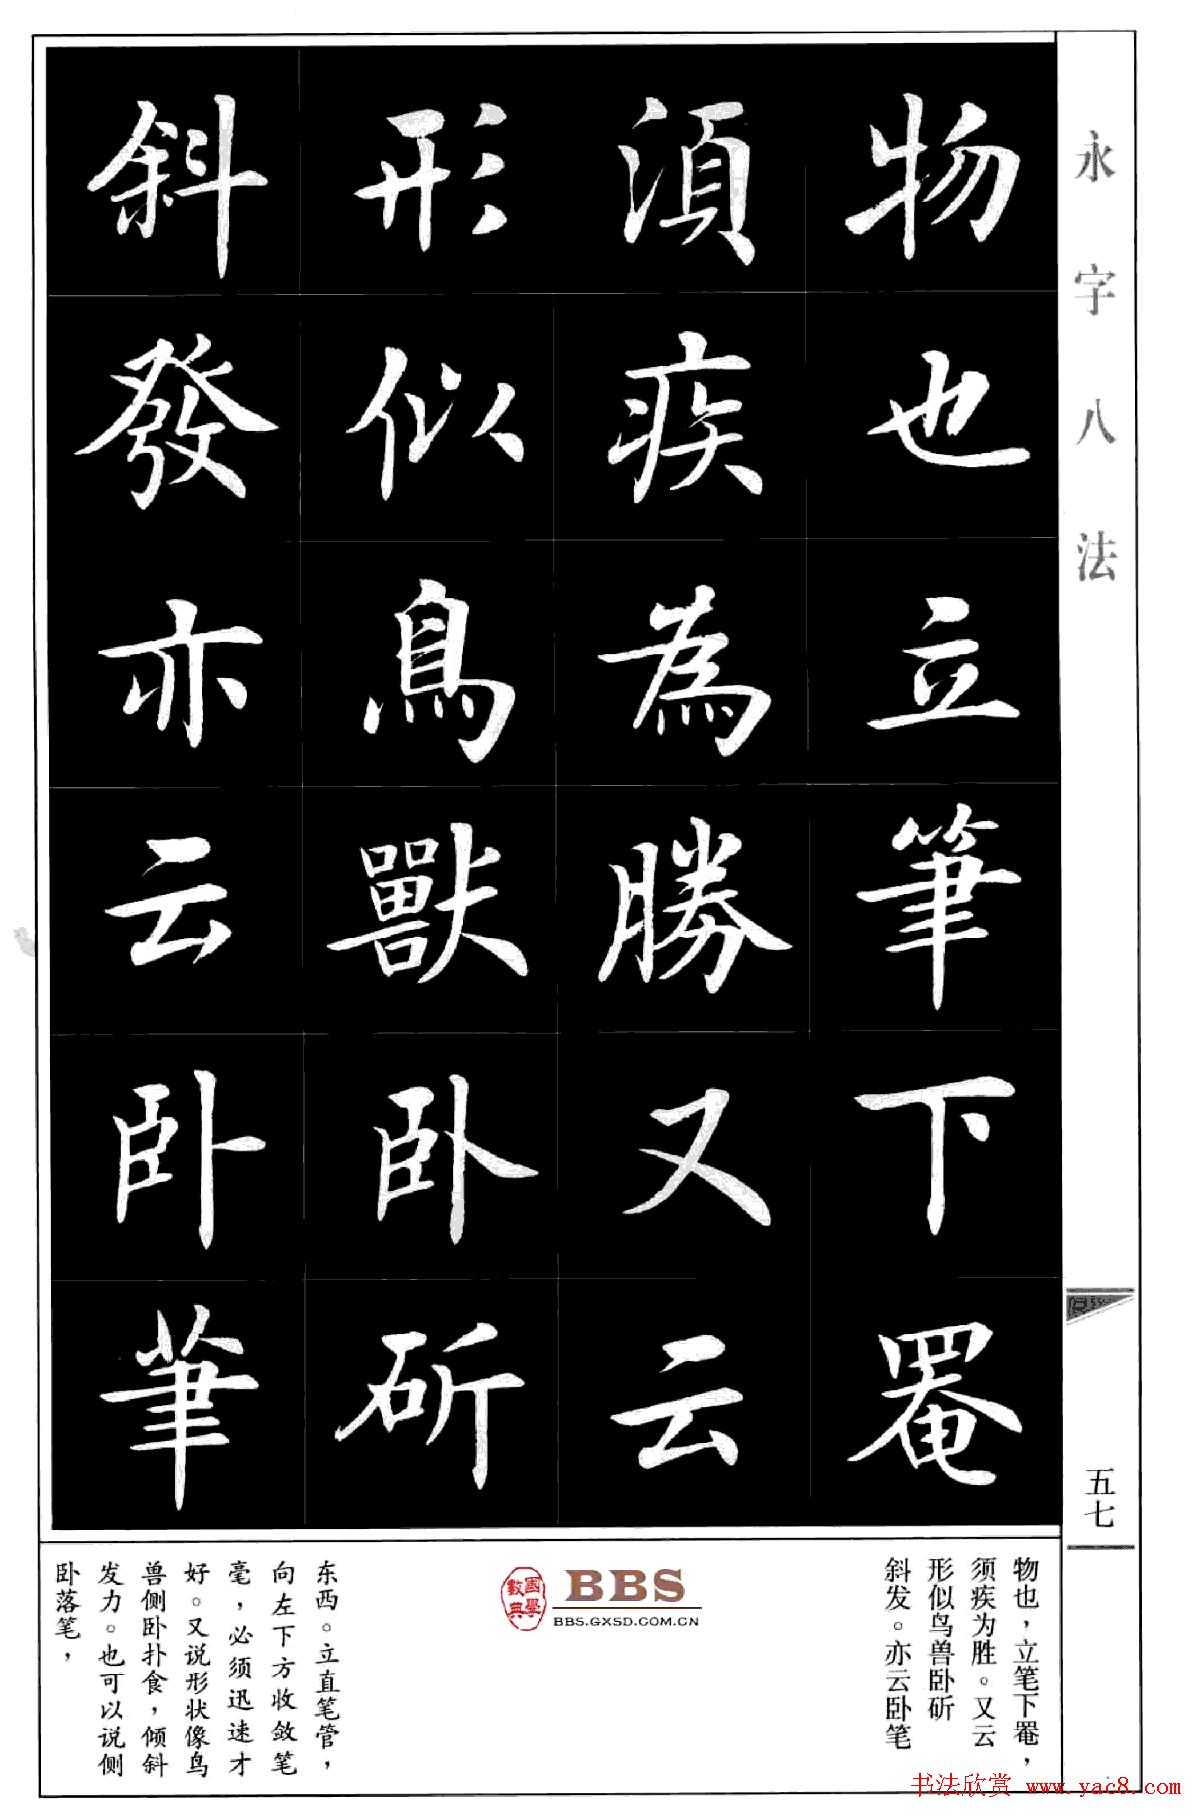 永字八法
物也立筆下罨
湏疾為勝又云
形似鳥獸卧斫
斜發亦云卧筆
五七
物也，立笔下罨，
须疾为胜。又云
形似鸟兽卧斫
斜发。亦云卧笔
國學數典
BBS
BBS.GXSD.COM.CN
东西。立直笔管，
向左下方收敛笔
毫，必须迅速才
好。又说形状像鸟
兽侧卧扑食，倾斜
发力。也可以说侧
卧落笔，
书法欣赏 www.yac8.com